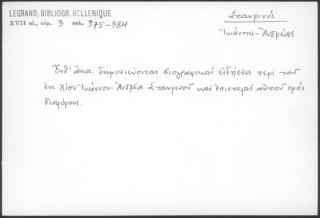 LEGRAND, BIBLIOGR. HELLENIQUE
XVII αἰ., τόμ. 3 σελ. 375-384
Σταυρινός
Ἰωάννης-Ἀνδρέας
Ἔνθ' ἀνωτ. δημοσιεύονται βιογραφικαὶ εἰδήσεις περὶ τοῦ
ἐκ Χίου Ἰωάννου-Ἀνδρέα Σταυρινοῦ καὶ ἐπιστολαὶ αὐτοῦ πρὸς
διαφόρους.